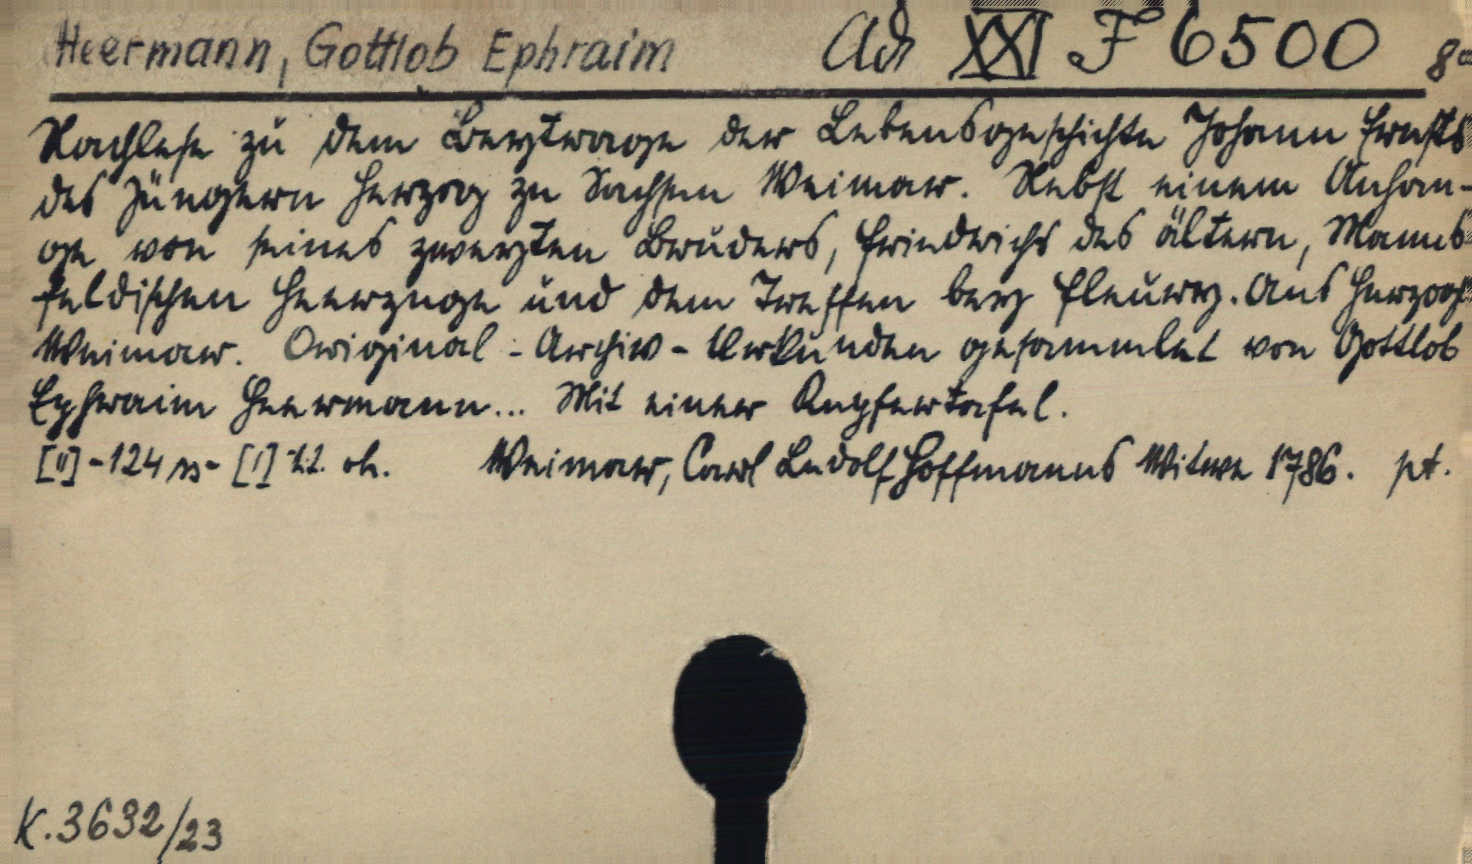 Heermann, Gottlob Ephraim Ad XXI F 6500 8°
Nachlese zu dem Beytrage der Lebensgeschichte Johann Ernsts
des Jüngern Herzog zu Sachsen Weimar. Nebst einem Anhan-
ge von seines zweyten Bruders, Friedrichs des ältern, Manns-
feldischen Heerzuge und dem Treffen bey Fleury. Aus Herzogl.
Weimar. Original-Archiv-Urkunden gesammlet von Gottlob
Ephraim Heermann... Mit einer Kupfertafel.
[II]-124 ss- [1] t.t. ok. Weimar, Carl Ludolf Hoffmanns Witwe 1786. pt.
K.3632/23